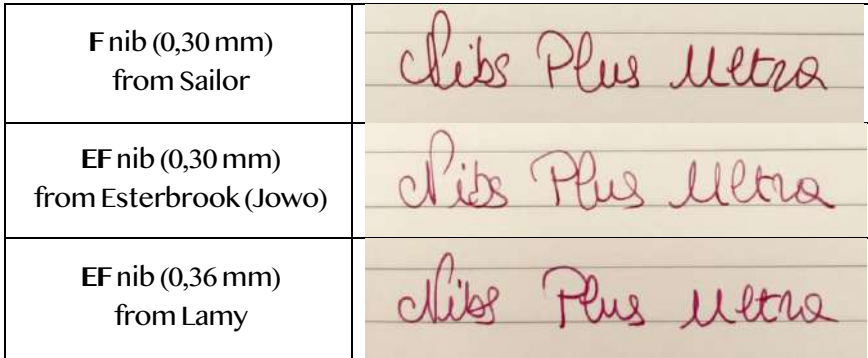 F nib (0,30 mm)
from Sailor
Nibs Plus Ultra
EF nib (0,30 mm)
from Esterbrook (Jowo)
Nibs Plus Ultra
EF nib (0,36 mm)
from Lamy
Nibs Plus Ultra